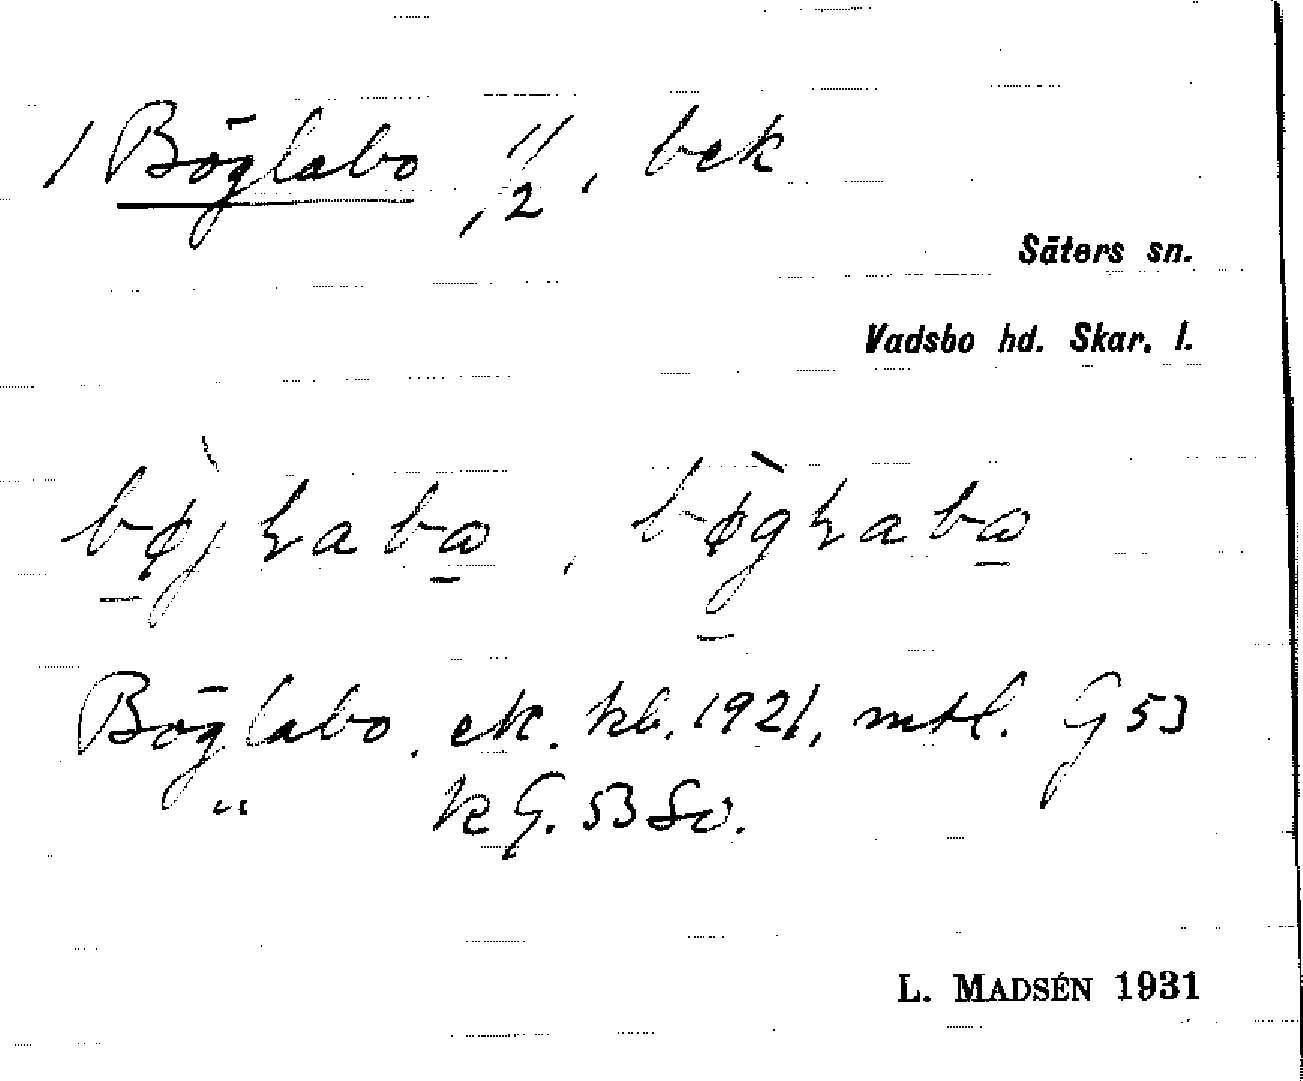 1 Böglabo ,11 2 , bek
Säters sn.
Vadsbo hd. Skar. l.
Böglabo. ek. kb. 1921, mtl. G 53
" k G. 53 So.
L. MADSÉN 1931